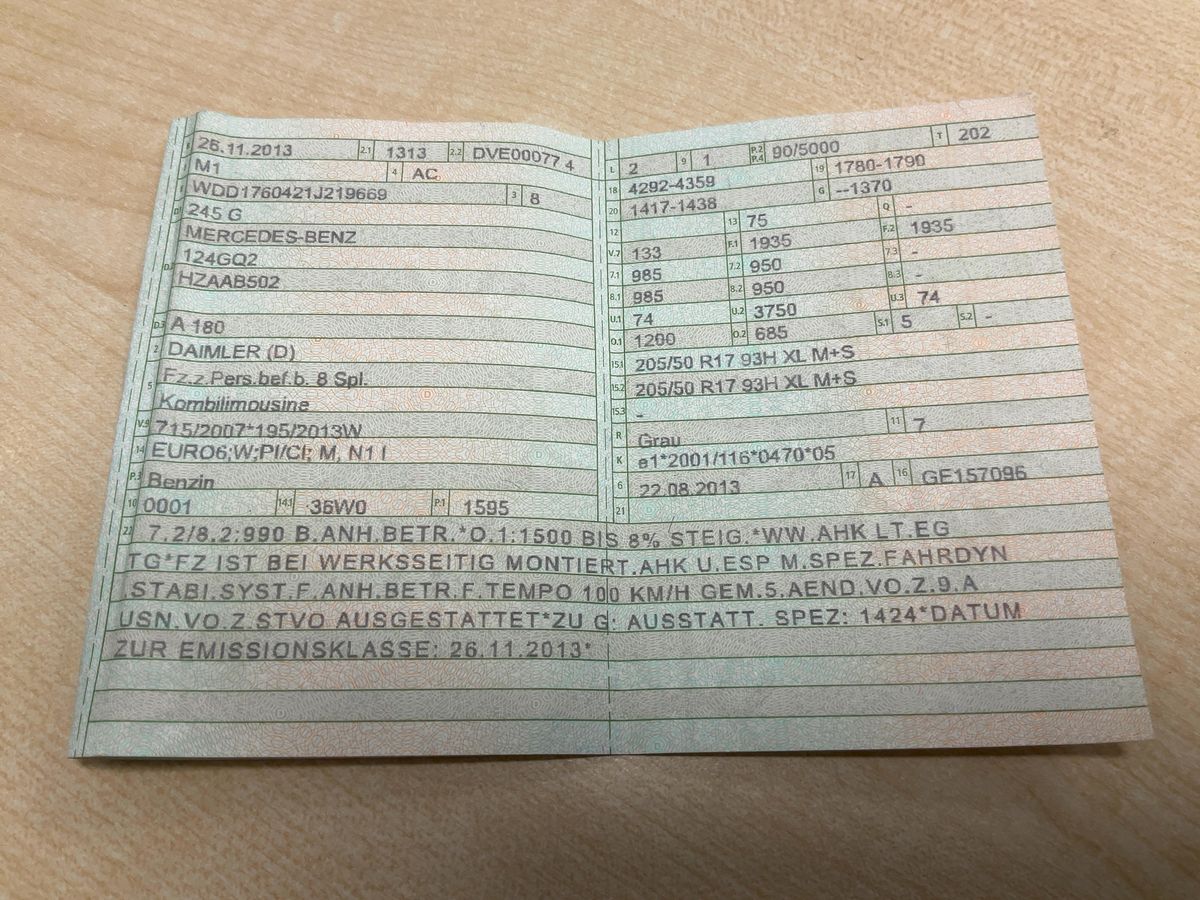 B 26.11.2013 2.1 1313 2.2 DVE00077 4
M1 4 AC
E WDD1760421J219669 3 8
D 245 G
MERCEDES-BENZ
D.2 124GQ2
HZAAB502
D.3 A 180
2 DAIMLER (D)
5 Fz.z.Pers.bef.b. 8 Spl.
Kombilimousine
V.9 715/2007*195/2013W
14 EURO6;W;PI/CI; M, N1 I
P.3 Benzin
10 0001 14.1 36W0 P.1 1595
L 2 9 1 P.2 P.4 90/5000 T 202
18 4292-4359 19 1780-1790
20 1417-1438 G --1370
12 13 75 Q -
V.7 133 F.1 1935 F.2 1935
7.1 985 7.2 950 7.3 -
8.1 985 8.2 950 8.3 -
U.1 74 U.2 3750 U.3 74
O.1 1200 O.2 685 S.1 5 S.2 -
15.1 205/50 R17 93H XL M+S
15.2 205/50 R17 93H XL M+S
15.3 -
R Grau 11 7
K e1*2001/116*0470*05
6 22.08.2013 17 A 16 GE157096
21
22 7.2/8.2:990 B.ANH.BETR.*O.1:1500 BIS 8% STEIG.*WW.AHK LT.EG
TG*FZ IST BEI WERKSSEITIG MONTIERT.AHK U.ESP M.SPEZ.FAHRDYN
.STABI.SYST.F.ANH.BETR.F.TEMPO 100 KM/H GEM.5.AEND.VO.Z.9.A
USN.VO.Z.STVO AUSGESTATTET*ZU G: AUSSTATT. SPEZ: 1424*DATUM
ZUR EMISSIONSKLASSE: 26.11.2013*